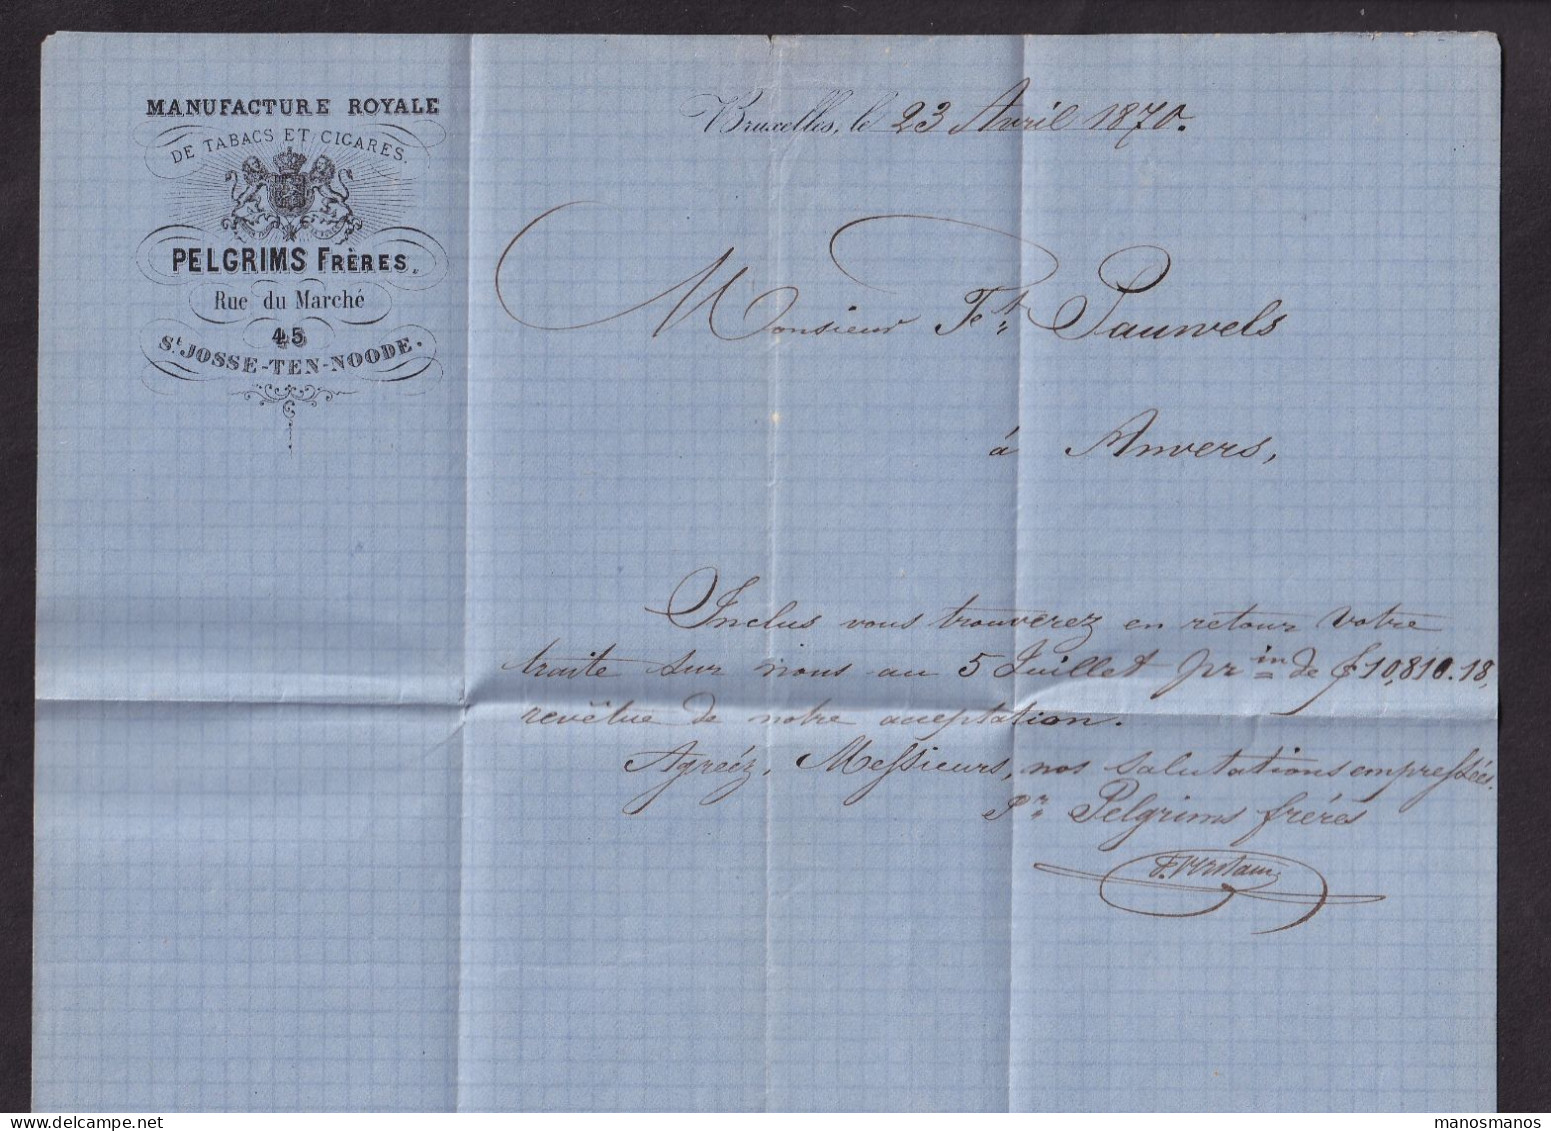 MANUFACTURE ROYALE
DE TABACS ET CIGARES.
PELGRIMS FRÈRES.
Rue du Marché
45
St. JOSSE-TEN-NOODE.
Bruxelles, le 23 Avril 1870.
Monsieur Pauwels
à Anvers,
Inclus vous trouverez en retour votre
traite sur nous au 5 Juillet pr in de f 10,810.18,
revêtue de notre acceptation.
Agréez, Messieurs, nos salutations empressées.
Pr Pelgrims frères
manosmanos